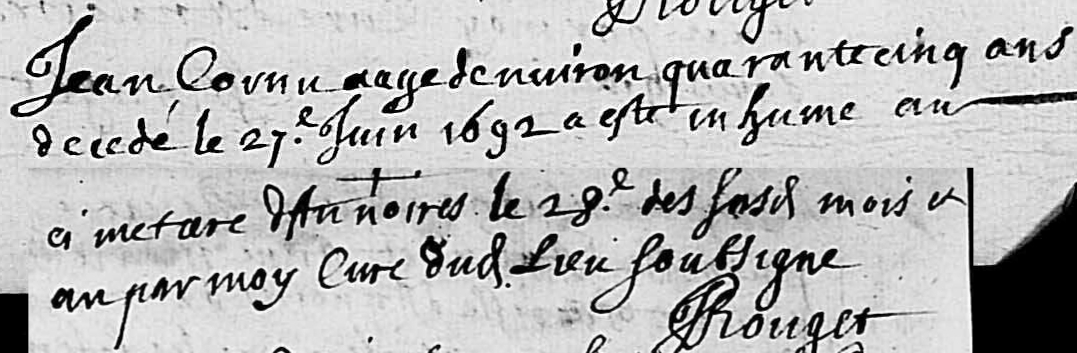 Rouget
Jean Cornu aage denuiron quarantecinq ans
decedé le 27.e Juin 1692 a este inhume au
cimetare noires le 28.e des sasd mois et
an par moy Cure dud. Lieu soubsigne
Rouget